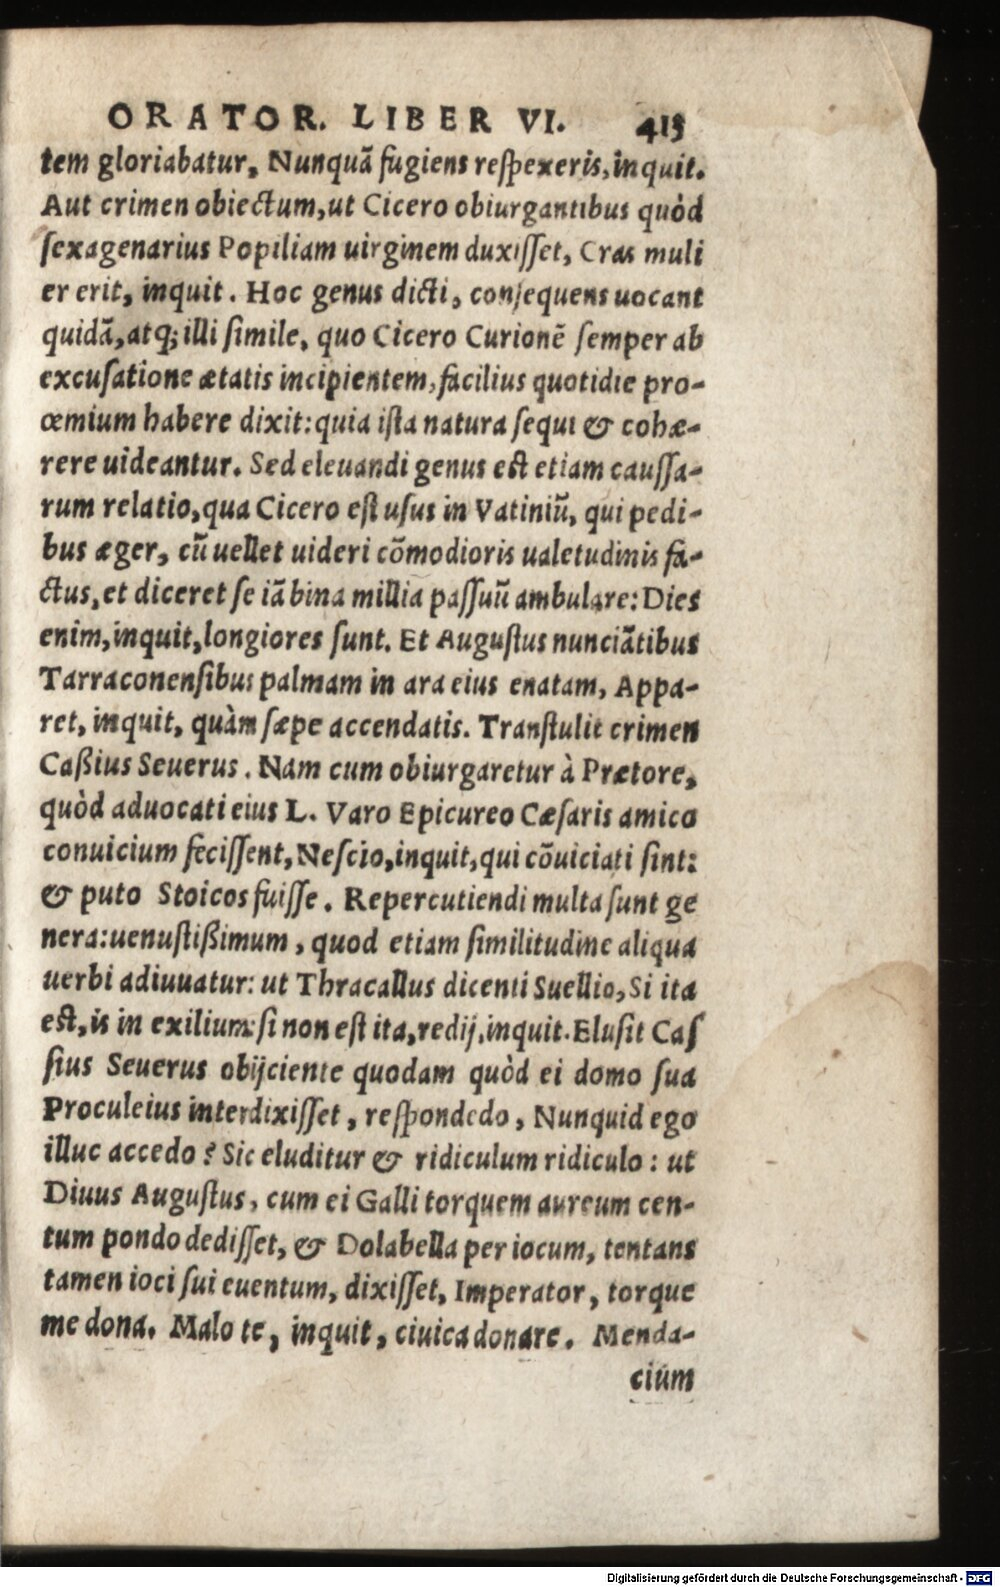 ORATOR. LIBER VI. 413
tem gloriabatur, Nunquā fugiens reſpexeris, inquit.
Aut crimen obiectum, ut Cicero obiurgantibus quòd
ſexagenarius Popiliam uirginem duxiſſet, Cras muli
er erit, inquit. Hoc genus dicti, conſequens uocant
quidā, atq; illi ſimile, quo Cicero Curionē ſemper ab
excuſatione ætatis incipientem, facilius quotidie pro-
œmium habere dixit: quia iſta natura ſequi & cohæ-
rere uideantur. Sed eleuandi genus est etiam cauſſa-
rum relatio, qua Cicero eſt uſus in Vatiniū, qui pedi-
bus æger, cū uellet uideri cōmodioris ualetudinis fa-
ctus, et diceret ſe iā bina millia paſſuū ambulare: Dies
enim, inquit, longiores ſunt. Et Auguſtus nunciātibus
Tarraconenſibus palmam in ara eius enatam, Appa-
ret, inquit, quàm ſæpe accendatis. Tranſtulit crimen
Caßius Seuerus. Nam cum obiurgaretur à Prætore,
quòd aduocati eius L. Varo Epicureo Cæſaris amico
conuicium feciſſent, Neſcio, inquit, qui cōuiciati ſint:
& puto Stoicos fuiſſe. Repercutiendi multa ſunt ge
nera: uenuſtißimum, quod etiam ſimilitudine aliqua
uerbi adiuuatur: ut Thracallus dicenti Suellio, Si ita
est, is in exilium: ſi non eſt ita, redij, inquit. Eluſit Caſ
ſius Seuerus obijciente quodam quòd ei domo ſua
Proculeius interdixiſſet, reſpondēdo, Nunquid ego
illuc accedo? Sic eluditur & ridiculum ridiculo: ut
Diuus Auguſtus, cum ei Galli torquem aureum cen-
tum pondo dediſſet, & Dolabella per iocum, tentans
tamen ioci ſui euentum, dixiſſet, Imperator, torque
me dona. Malo te, inquit, ciuica donare. Menda-
cium
Digitalisierung gefördert durch die Deutsche Forschungsgemeinschaft - DFG